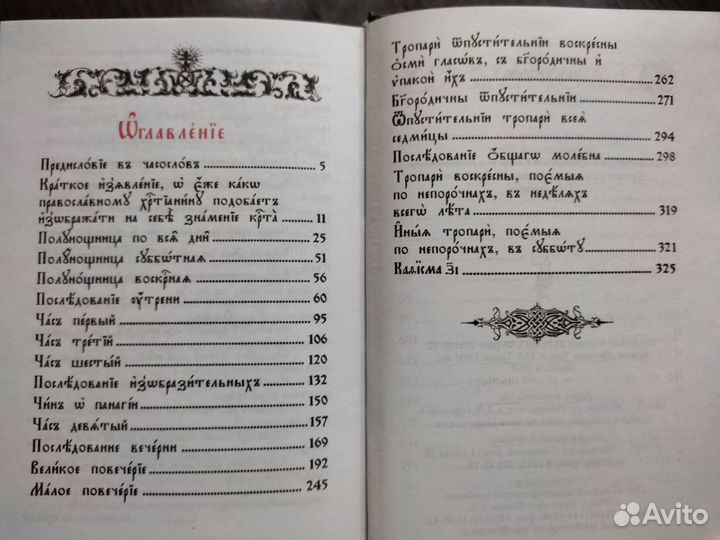 Ѡглавле́нїе
Предисло́вїе въ часосло́въ 5
Кра́ткое и҆з̾ѧвле́нїе, ѡ҆ є҆́же ка́кѡ
правосла́вному хр҇тїани́ну подоба́етъ
и҆з̾ѡбража́ти на себѣ̀ зна́менїе кр҇та̀ 11
Полу́нощница по всѧ̑ дни̑ 25
Полу́нощница сꙋббѡ́тнаѧ 51
Полу́нощница воскр҇наѧ 56
Послѣ́дованїе ᲂу҆́трени 60
Ча́съ пе́рвый 95
Ча́съ тре́тїй 106
Ча́съ шесты́й 120
Послѣ́дованїе и҆з̾ѡбрази́тельныхъ 132
Чи́нъ ѡ҆ панагі́и 150
Ча́съ девѧ́тый 157
Послѣ́дованїе вече́рни 169
Вели́кое повече́рїе 192
Ма́лое повече́рїе 245
Тропарѝ ѿпусти́тельнїи воскре́сны
ѻ҆смѝ гласѡ́въ, съ бг҃оро́дичны и҆
ѵ҆пакоѝ и҆́хъ 262
Бг҃оро́дичны ѿпусти́тельнїи 271
Ѿпусти́тельнїи тропарѝ всеѧ̀
седми́цы 294
Послѣ́дованїе ѻ҆́бщагѡ моле́бна 298
Тропарѝ воскре́сны, пѡе́мыѧ
по непоро́чнахъ, въ недѣ́лѧхъ
всегѡ̀ лѣ́та 319
И҆ны́ѧ тропарѝ, пѡе́мыѧ
по непоро́чнахъ, въ сꙋббѡ́тꙋ 321
Каѳі́сма з҃і 325
Avito